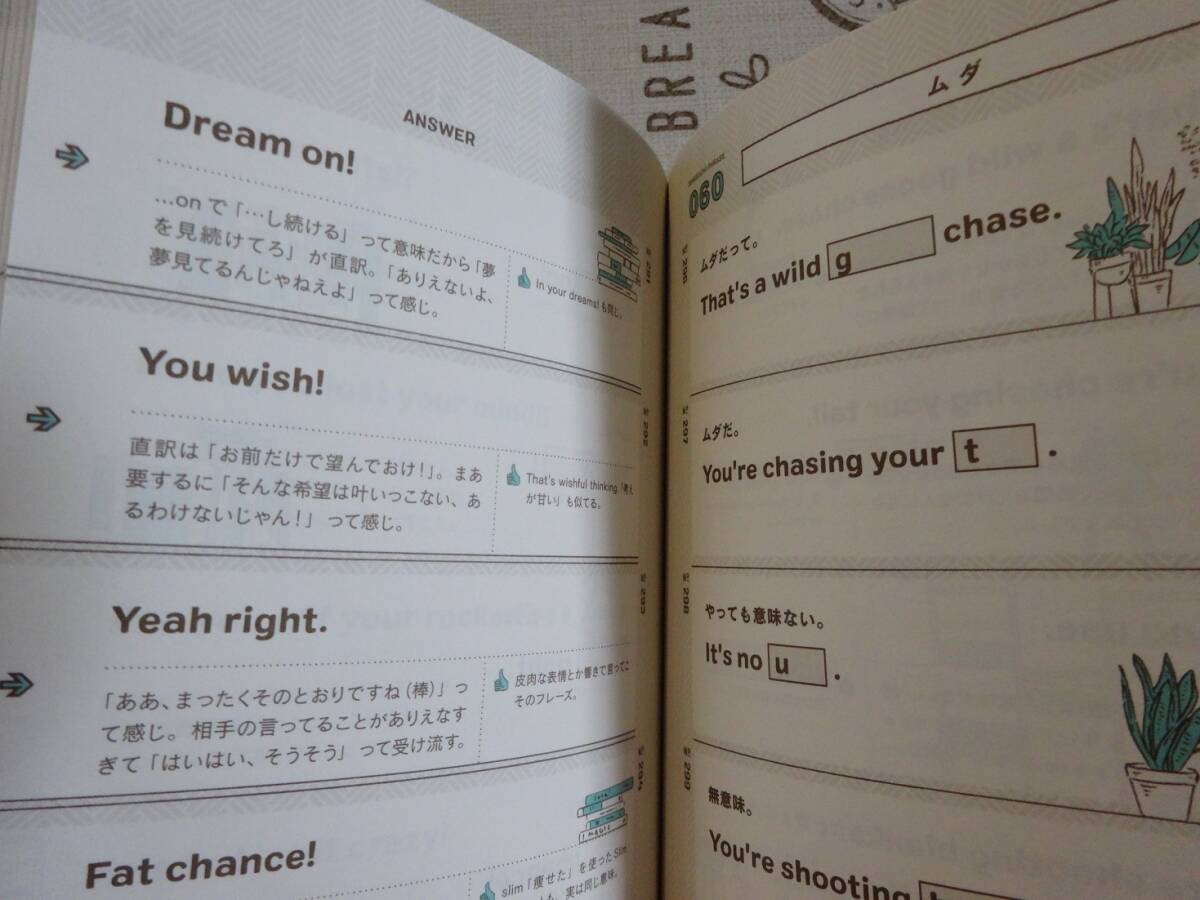 BREA
ANSWER
Dream on!
…onで「…し続ける」って意味だから「夢
を見続けてろ」が直訳。「ありえないよ、
夢見てるんじゃねえよ」って感じ。
In your dreams! も同じ。
291
You wish!
直訳は「お前だけで望んでおけ！」。まあ
要するに「そんな希望は叶いっこない、あ
るわけないじゃん！」って感じ。
That's wishful thinking.「考え
が甘い」も似てる。
292
Yeah right.
「ああ、まったくそのとおりですね（棒）」っ
て感じ。相手の言ってることがありえなす
ぎて「はいはい、そうそう」って受け流す。
皮肉な表情とか響きで言ってこ
そのフレーズ。
293
Fat chance!
slim「痩せた」を使ったSlim
も、実は同じ意味。
294
ムダ
060
296
ムダだって。
That's a wild g chase.
297
ムダだ。
You're chasing your t .
298
やっても意味ない。
It's no u .
299
無意味。
You're shooting